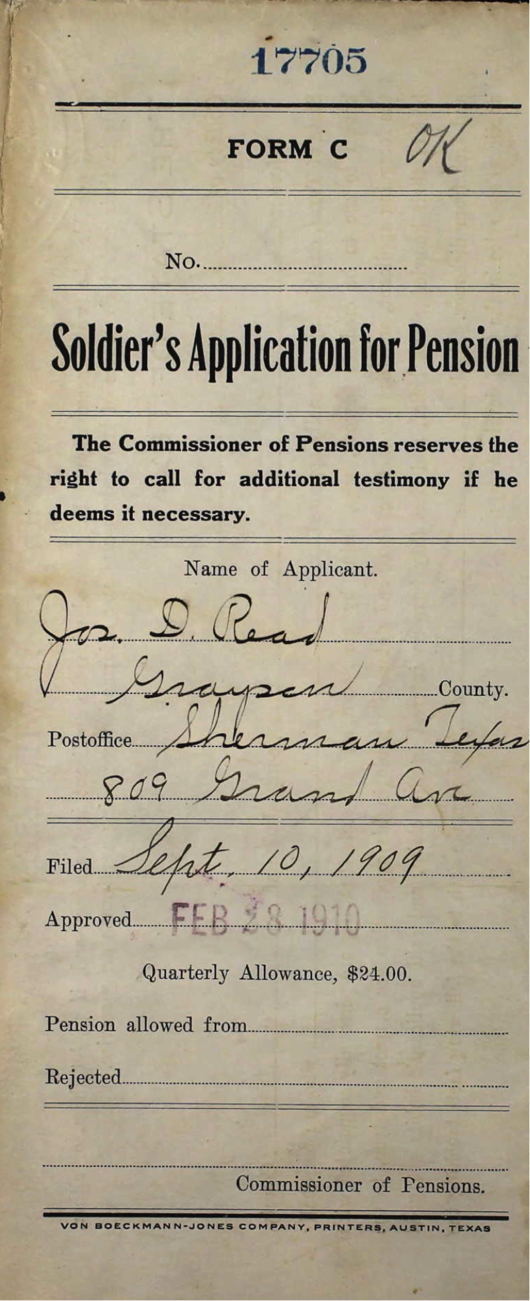 17705
FORM C OK
No.
Soldier's Application for Pension
The Commissioner of Pensions reserves the
right to call for additional testimony if he
deems it necessary.
Name of Applicant.
Jos. D. Read
Grayson County.
Postoffice Sherman Texas
809 Grand Ave
Filed Sept. 10, 1909
Approved FEB 28 1910
Quarterly Allowance, $24.00.
Pension allowed from
Rejected
Commissioner of Pensions.
VON BOECKMANN-JONES COMPANY, PRINTERS, AUSTIN, TEXAS